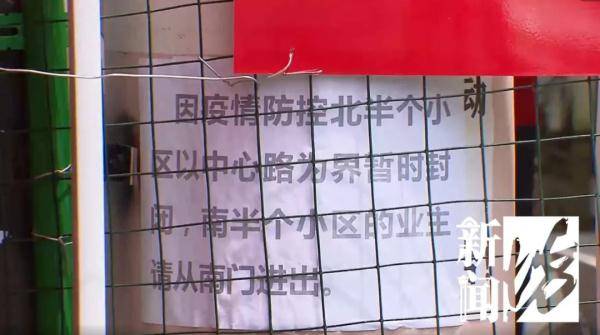 动
因疫情防控北半个小
区以中心路为界暂时封
闭，南半个小区的业主
请从南门进出。
新闻坊